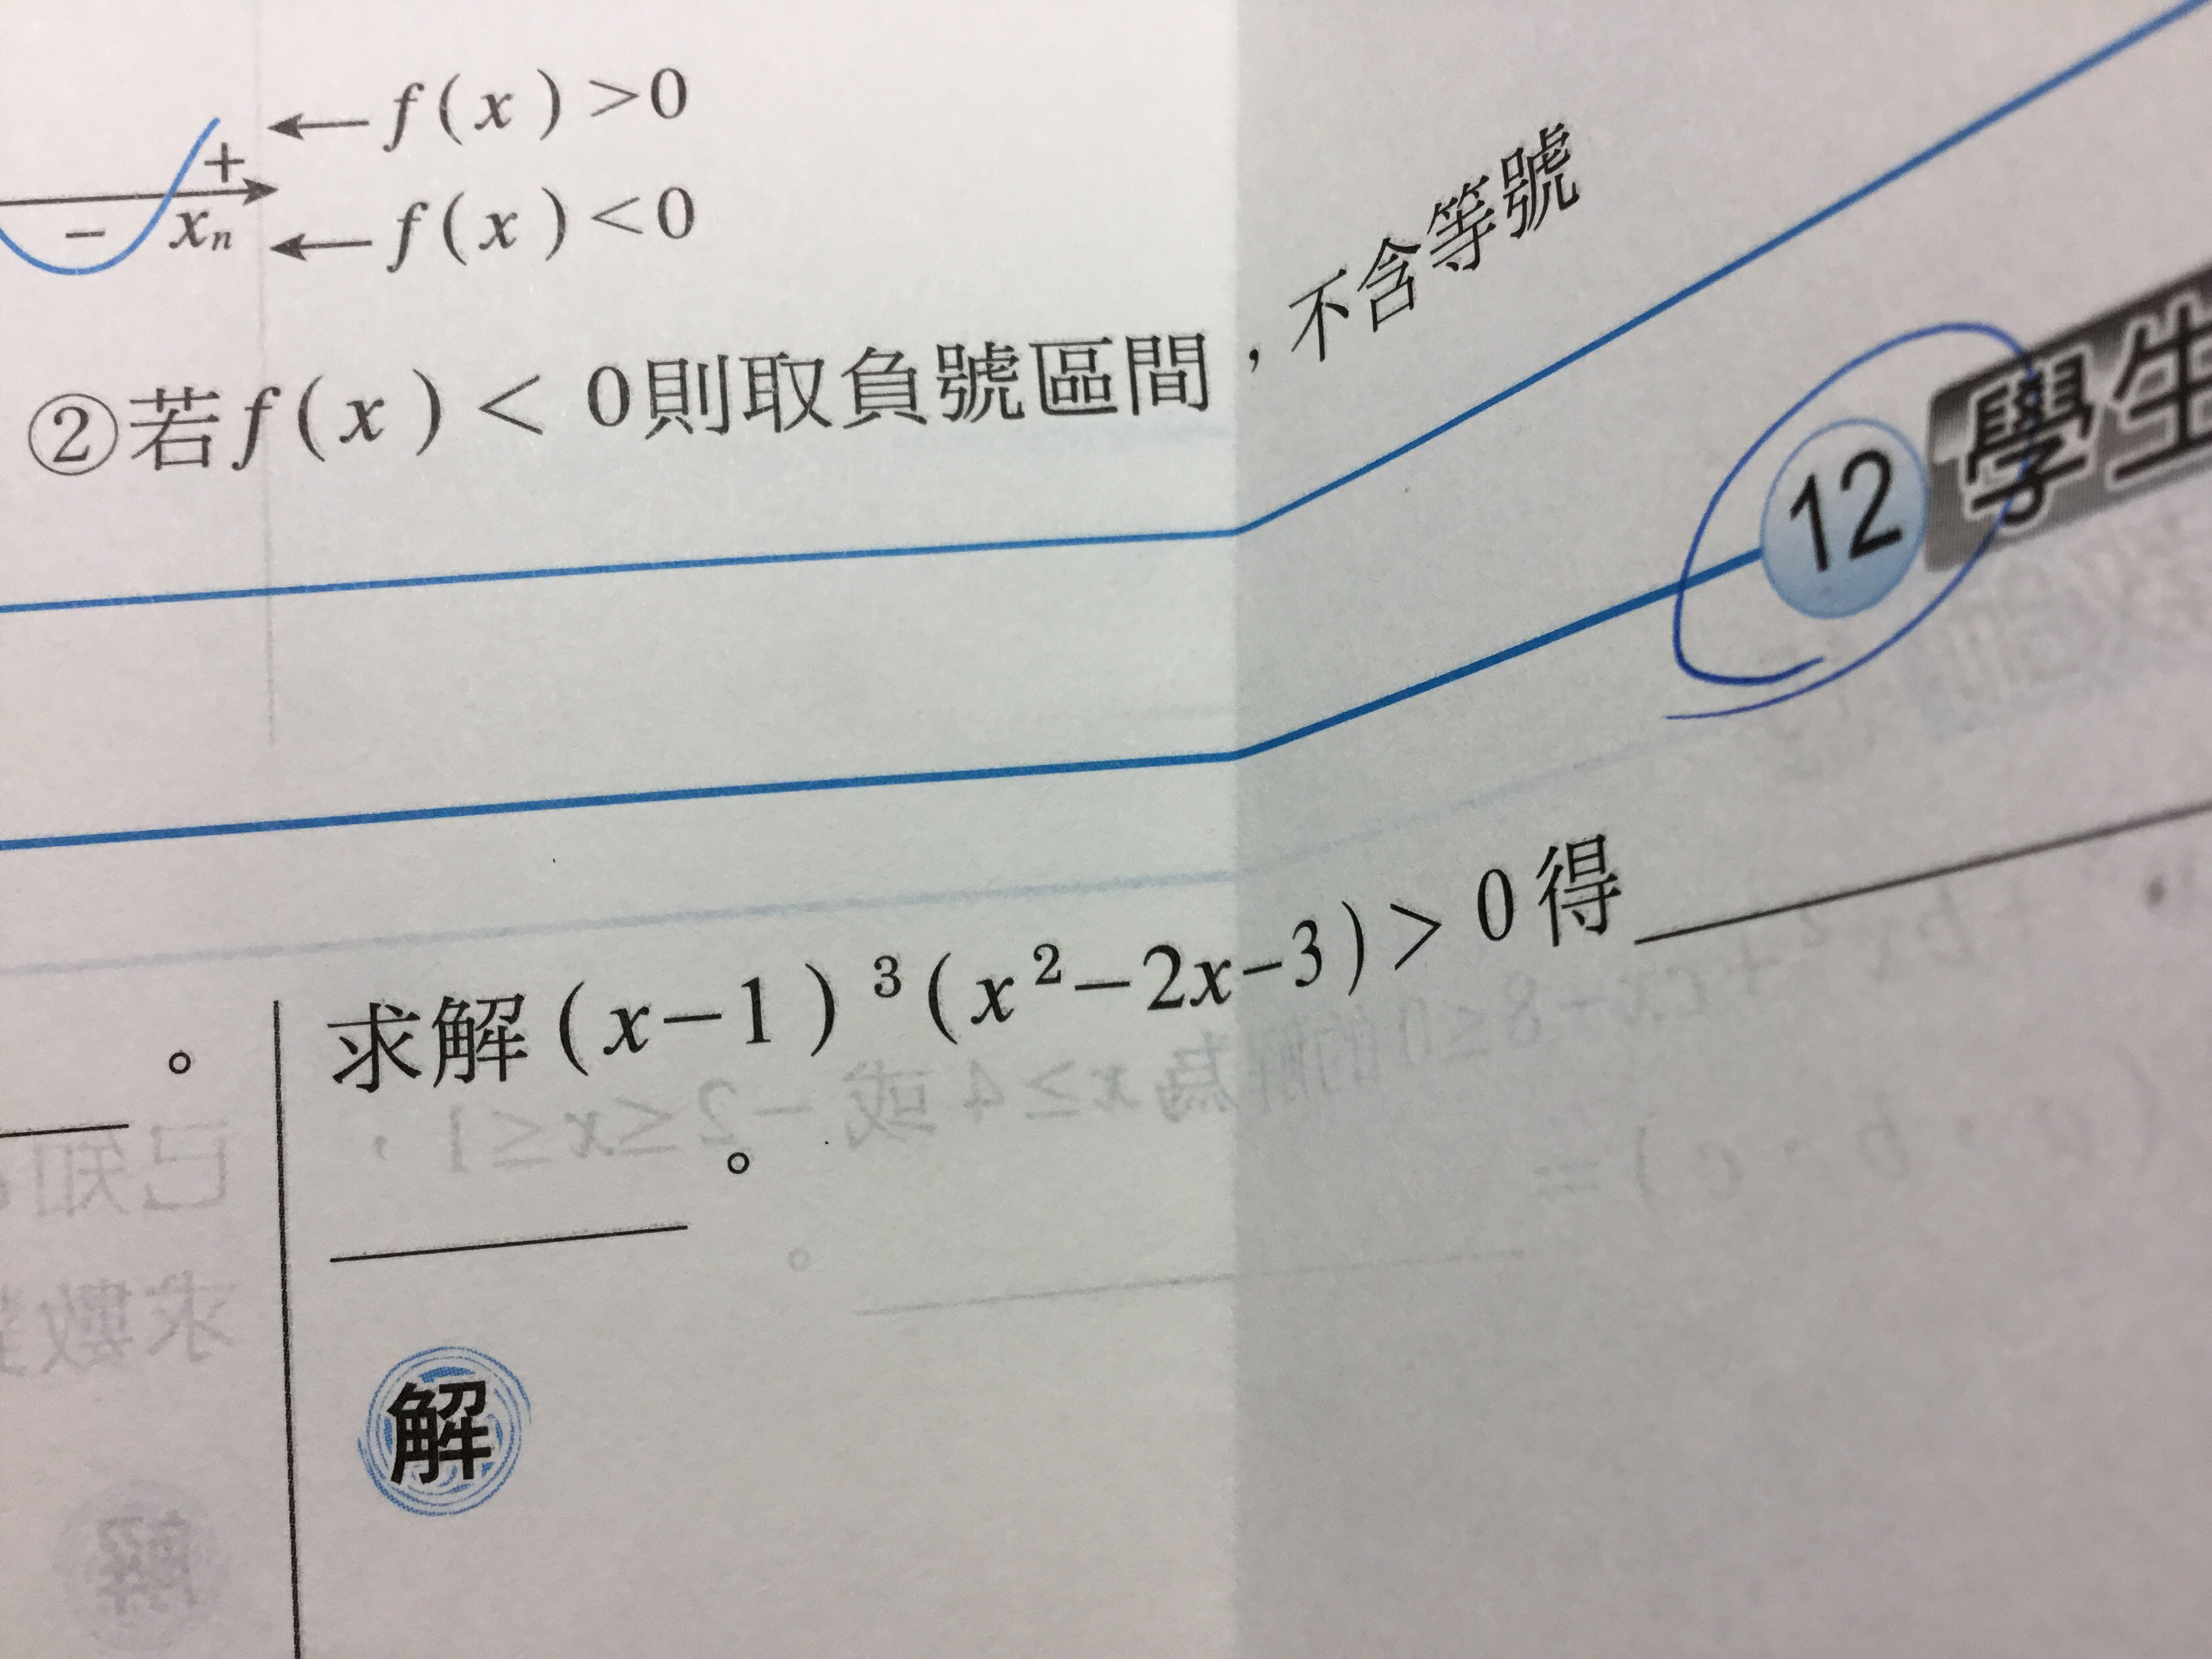 f(x)>0
+
− xₙ
f(x)<0
②若f(x)< 0則取負號區間，不含等號
12 學生
求解(x−1)³(x²−2x−3)>0得
。
。
解